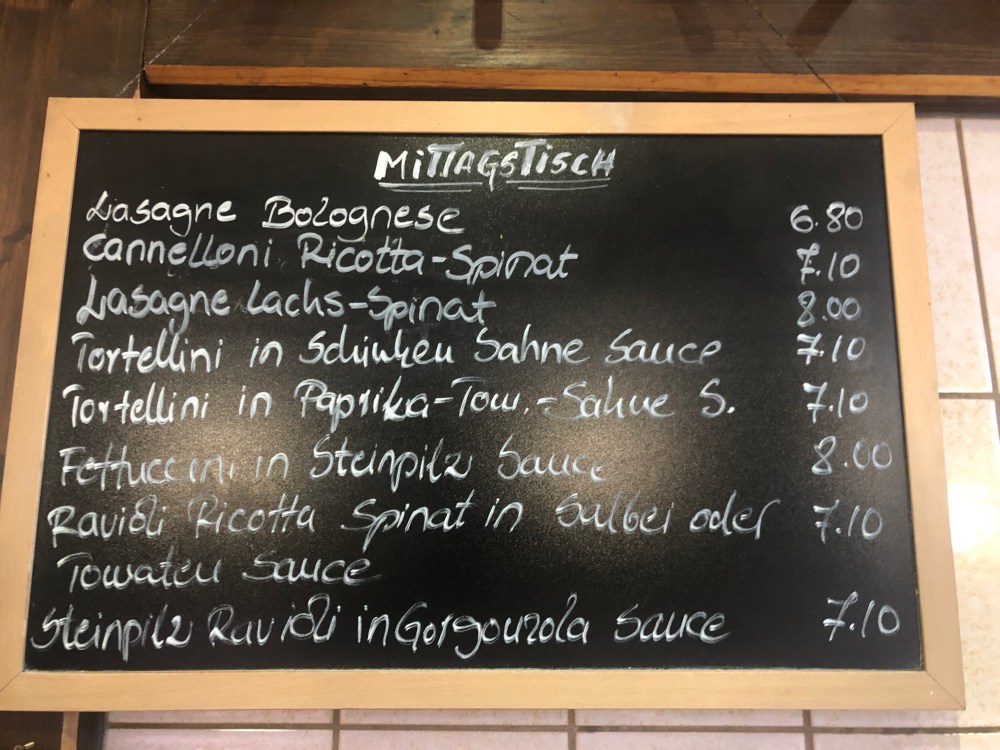 MITTAGSTISCH
Lasagne Bolognese 6.80
Cannelloni Ricotta-Spinat 7.10
Lasagne Lachs-Spinat 8.00
Tortellini in Schinken Sahne Sauce 7.10
Tortellini in Paprika-Tom.-Sahne S. 7.10
Fettuccini in Steinpilz Sauce 8.00
Ravioli Ricotta Spinat in Salbei oder 7.10
Tomaten Sauce
Steinpilz Ravioli in Gorgonzola Sauce 7.10